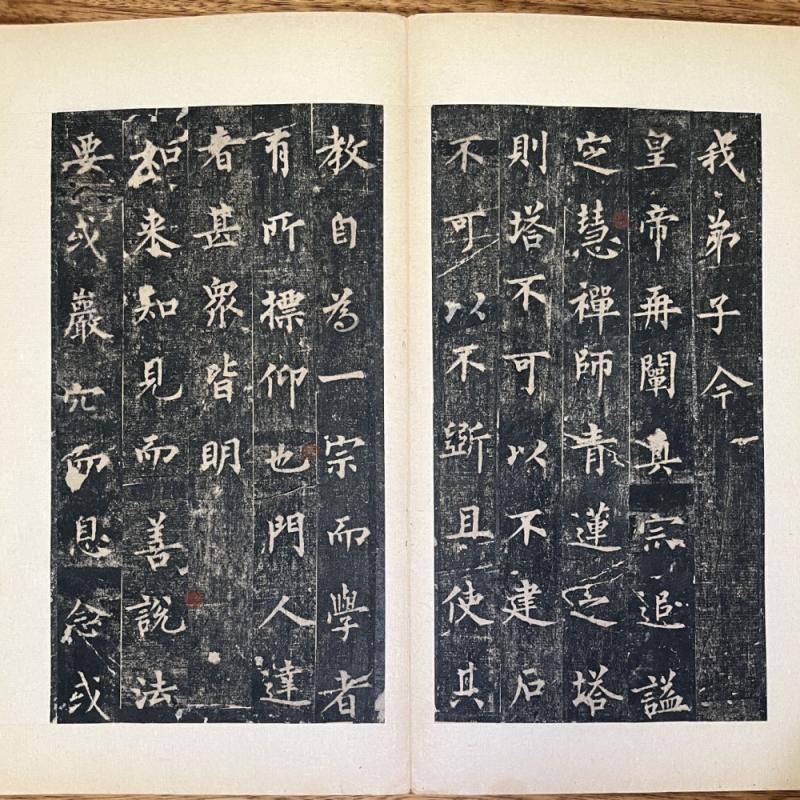 我弟子今
皇帝再闡真宗追謚
定慧禪師青蓮之塔
則塔不可以不建石
不可以不斵且使其
教自為一宗而學者
有所標仰也門人達
者甚眾皆明
如來知見而善說法
要或巖穴而息念或